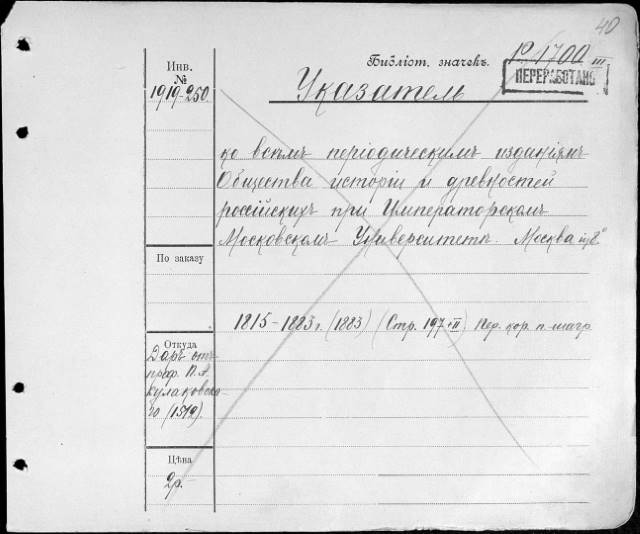 40
Инв.
№
1919-250.
Библіот. значекъ.
Р 1700 III
ПЕРЕРАБОТАНО
Указатель
ко всѣмъ періодическимъ изданіямъ
Общества исторіи и древностей
россійскихъ при Императорскомъ
Московскомъ Университетѣ. Москва
По заказу
1815-1883 г. (1883) (Стр. 197+II) Пер. кор. п. шагр.
Откуда
Даръ отъ
проф. П. А.
Кулаковска-
го (1512).
Цѣна
2р.